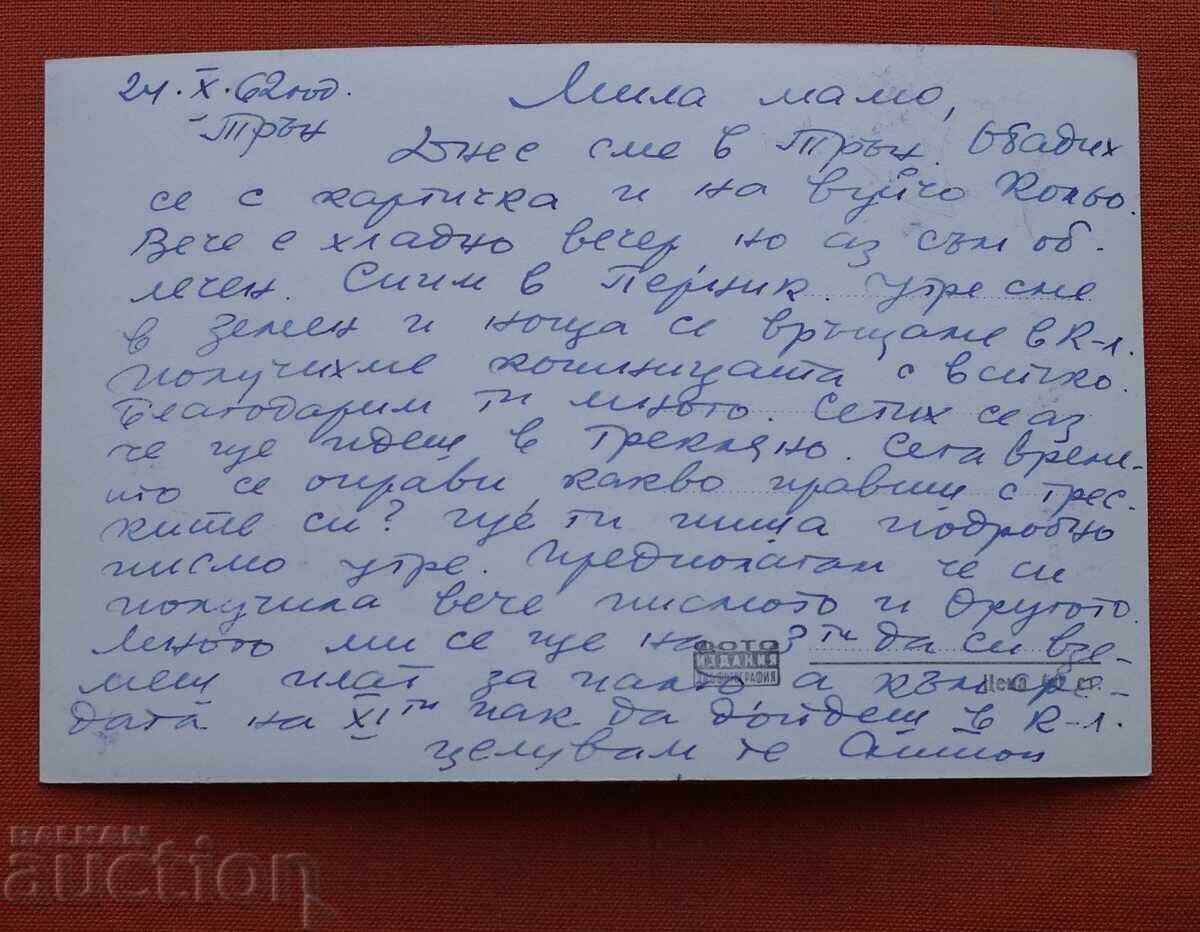 24.X.62 год. Мила мамо,
Трън
Днес сме в Трън. Обадих
се с картичка и на вуйчо Кольо.
Вече е хладно вечер но аз съм об-
лечен. Спим в Перник. Утре сме
в Земен и ноща се връщаме в К-л.
Получихме кошницата с всичко.
Благодарим ти много. Сетих се аз
че ще идеш в Трекляно. Сега време-
то се оправи, какво правиш с трес-
ките си? Ще ти пиша подробно
писмо утре. Предполагам че си
получила вече писмото и другото.
Много ми се ще на 3ти да си взе-
меш плат за палто а към сре-
дата на XIти пак да дойдеш в К-л.
целувам те
ФОТО
ИЗДАНИЯ
Цена ст.
BALKAN
auction